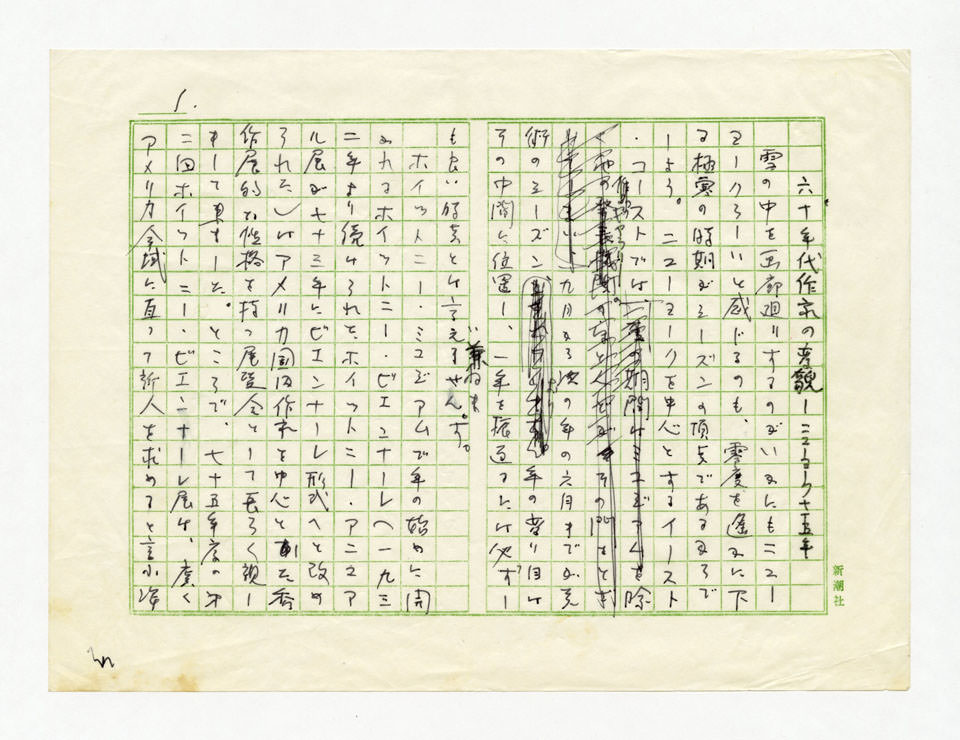 1.
六十年代作家の変貌—ニューヨーク七五年
雪の中を画廊廻りするのがいかにもニュー
ヨークらしいと感じるのも、零度を遙かに下
る極寒の時期がシーズンの頂点であるからで
しょう。ニューヨークを中心とするイースト
・コーストでは、
九月から次の年の六月までが美
術のシーズン 年の変り目は
その中間に位置し、一年を振返るには必ずし
も良い時点とは言えません。
ホイットニー・ミュゼアムで年の始めに開
かれるホイットニー・ビエンナーレ(一九三
二年より続けられたホイットニー・アニュア
ル展が七十三年にビエンナーレ形式へと改め
られた)はアメリカ国内作家を中心とした秀
作展的な性格を持つ展覧会として長らく親し
まして来ました。ところで、七十五年度の第
二回ホイットニー・ビエンナーレ展は、廣く
アメリカ全域に亘って新人を求めると言う姿
新潮社